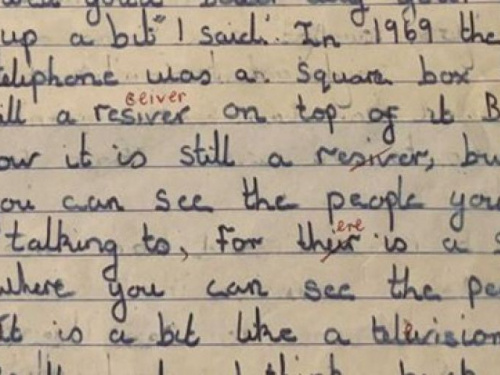 up a bit" I said. In 1969 the
telephone was a square box
ill a resiver on top of it B
ceiver
ow it is still a resiver, bu
ou can see the people you
talking to, for their is a s
ere
where you can see the pe
It is a bit like a television